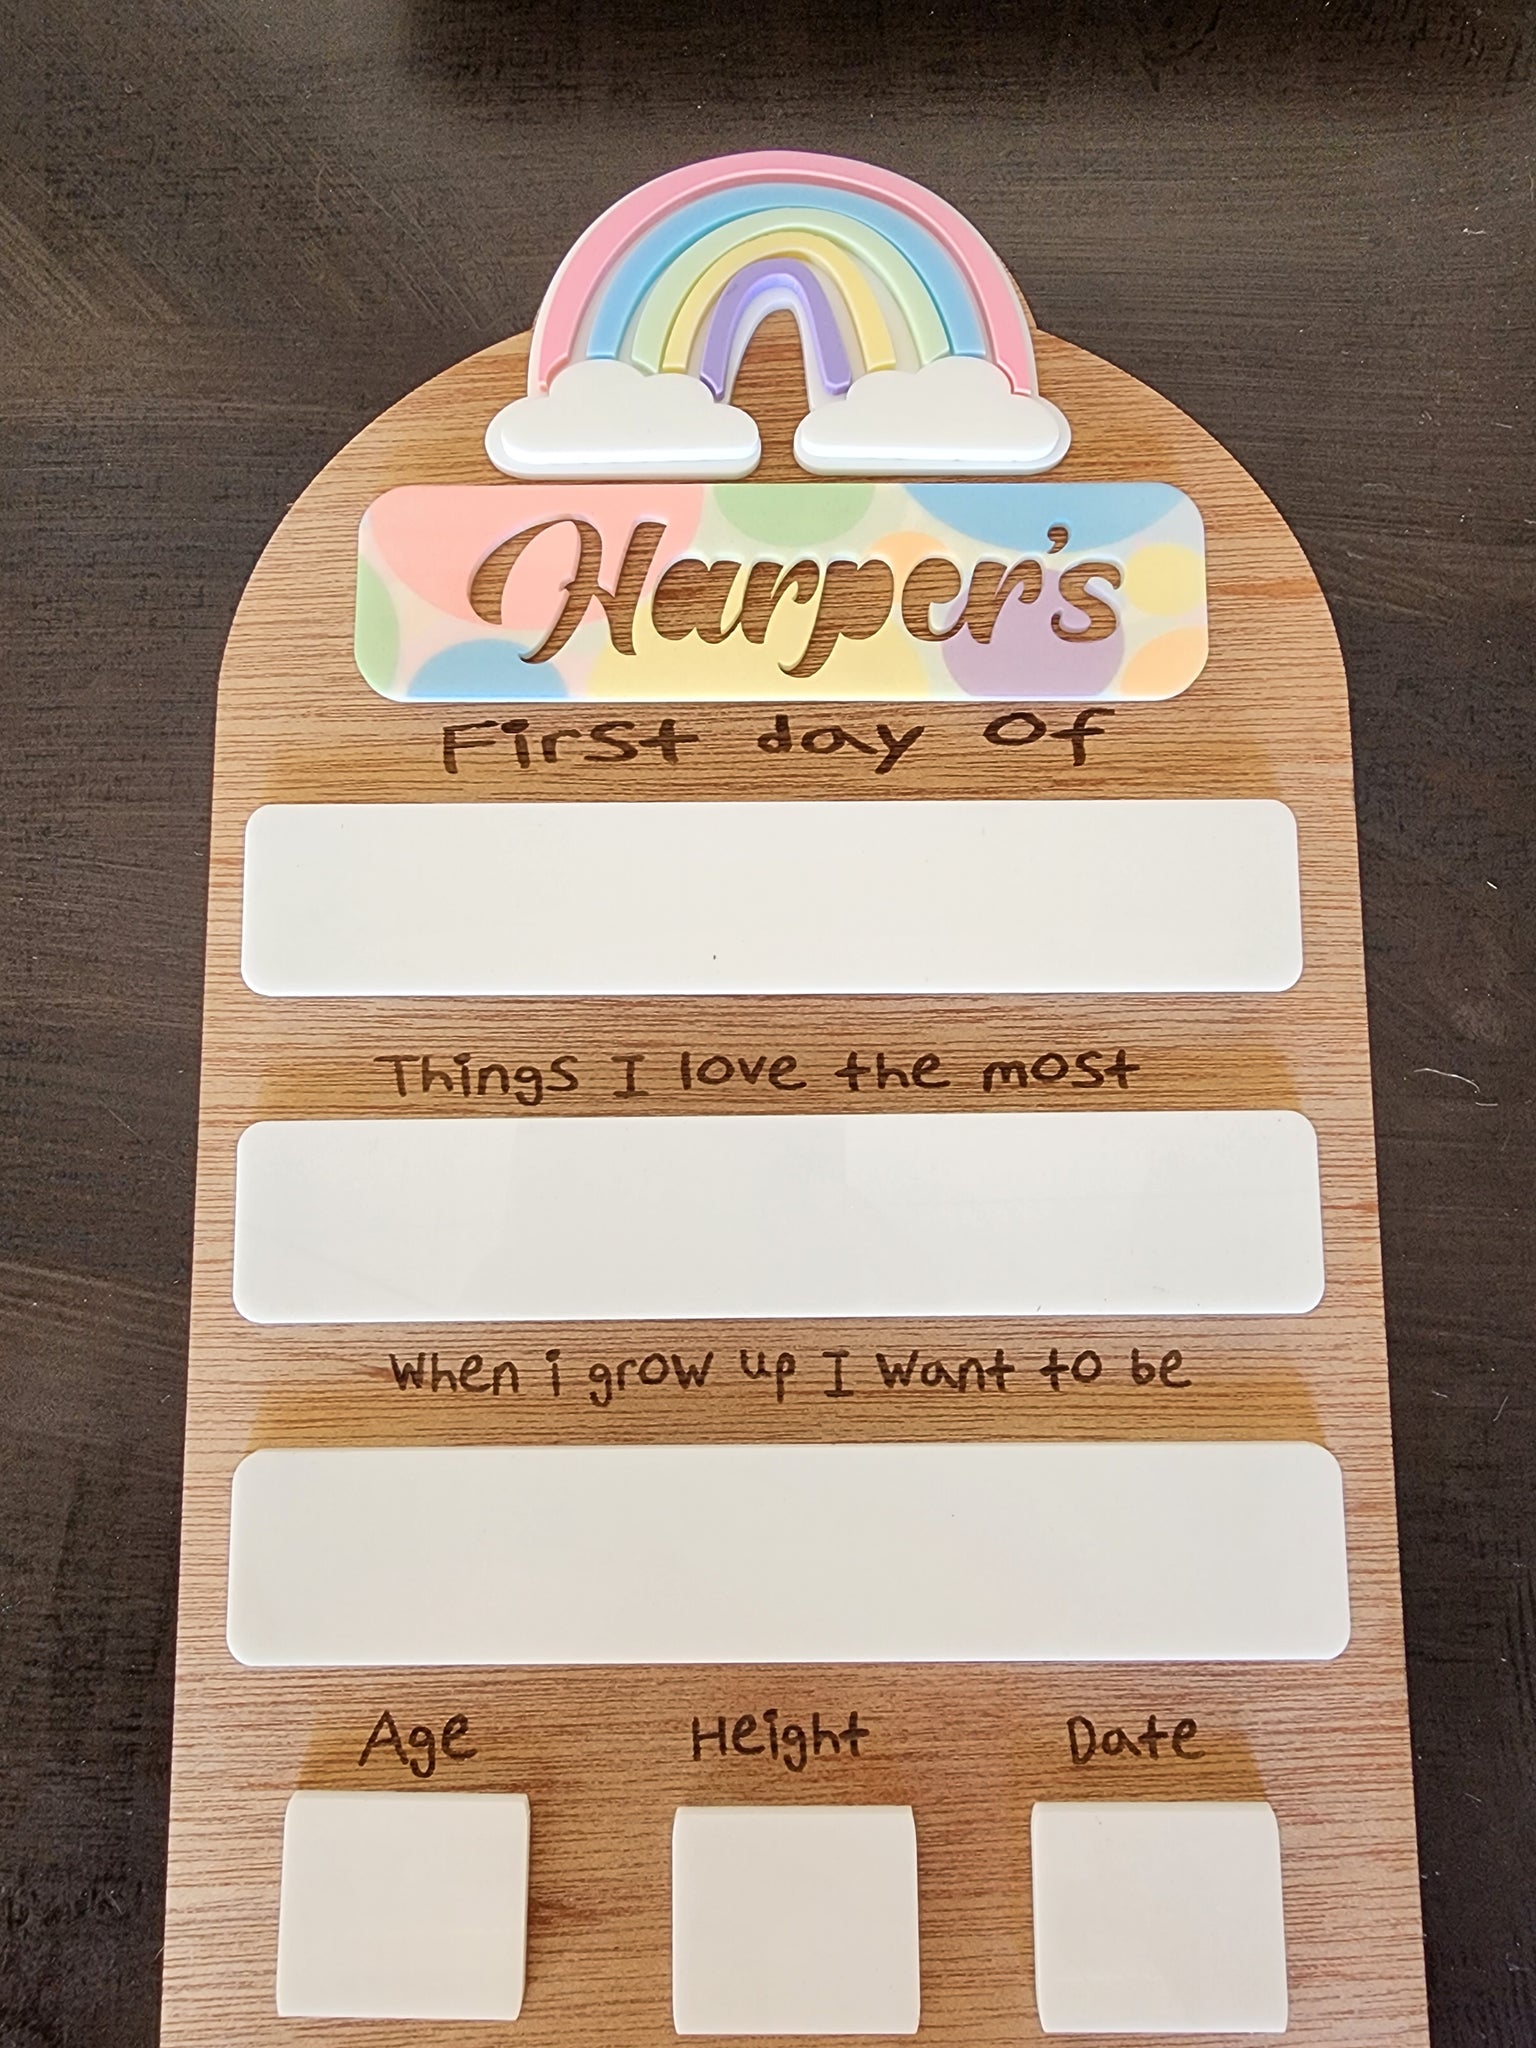 Harper's
First day of
Things I love the most
When i grow up I want to be
Age Height Date